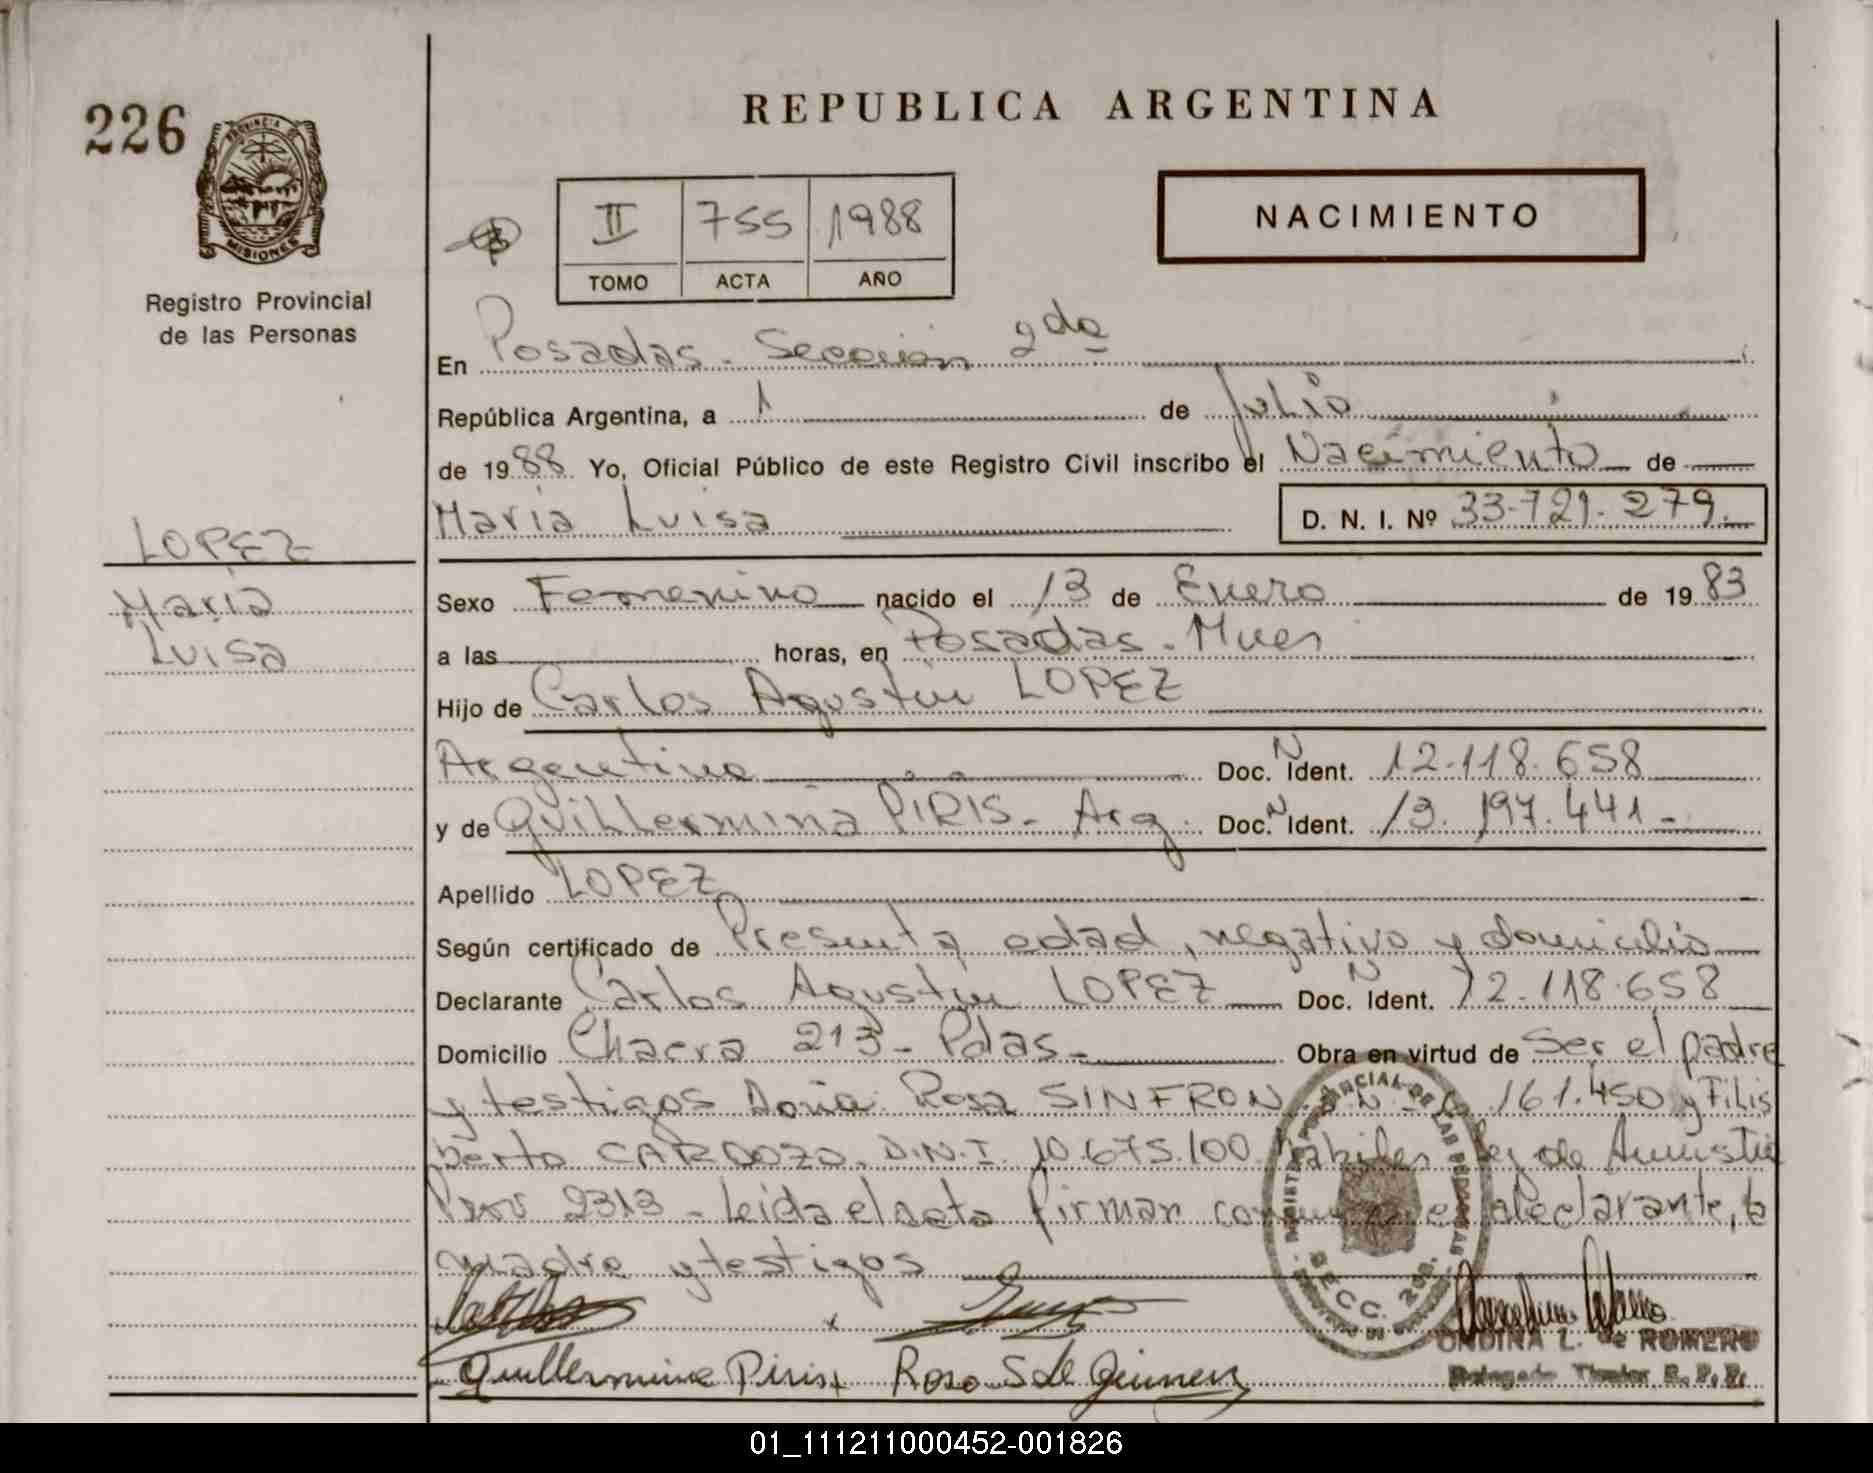 226
PROVINCIA DE
MISIONES
Registro Provincial
de las Personas
REPUBLICA ARGENTINA
NACIMIENTO
II 755 1988
TOMO ACTA AÑO
En Posadas - Sección 2da
República Argentina, a 1 de Julio
de 1988 Yo, Oficial Público de este Registro Civil inscribo el Nacimiento de
María Luisa D. N. I. Nº 33.721.279
LOPEZ
María
Luisa
Sexo Femenino nacido el 13 de Enero de 1983
a las horas, en Posadas - Mnes
Hijo de Carlos Agustín LOPEZ
Argentino Doc. N Ident. 12.118.658
y de Guillermina PIRIS - Arg. Doc. N Ident. 13.197.441 -
Apellido LOPEZ
Según certificado de Presunta edad, negativo y domicilio
Declarante Carlos Agustín LOPEZ Doc. N Ident. 12.118.658
Domicilio Chacra 213 - Pdas - Obra en virtud de Ser el padre
y testigos Doña Rosa SINFRON 161.450 y Filis
berto CARDOZO. D.N.I. 10.675.100 hábiles Ley de Amnistía
Prov 2313 - Leída el acta firman conmigo el declarante, la
madre y testigos
REGISTRO PROVINCIAL DE LAS PERSONAS
SECC. 2da.
Guillermina Piris Rosa S de Gimenez
ONDINA L. de ROMERO
Delegado Titular R. P. P.
01_111211000452-001826